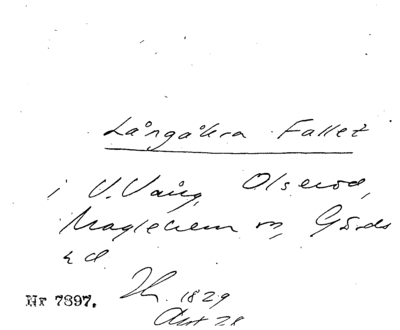 Långåkra Fallet
i V. Vång, Olserød,
Maglehem sn, Gärds
hd.
Nr 7397. Th. 1829
Akt 28